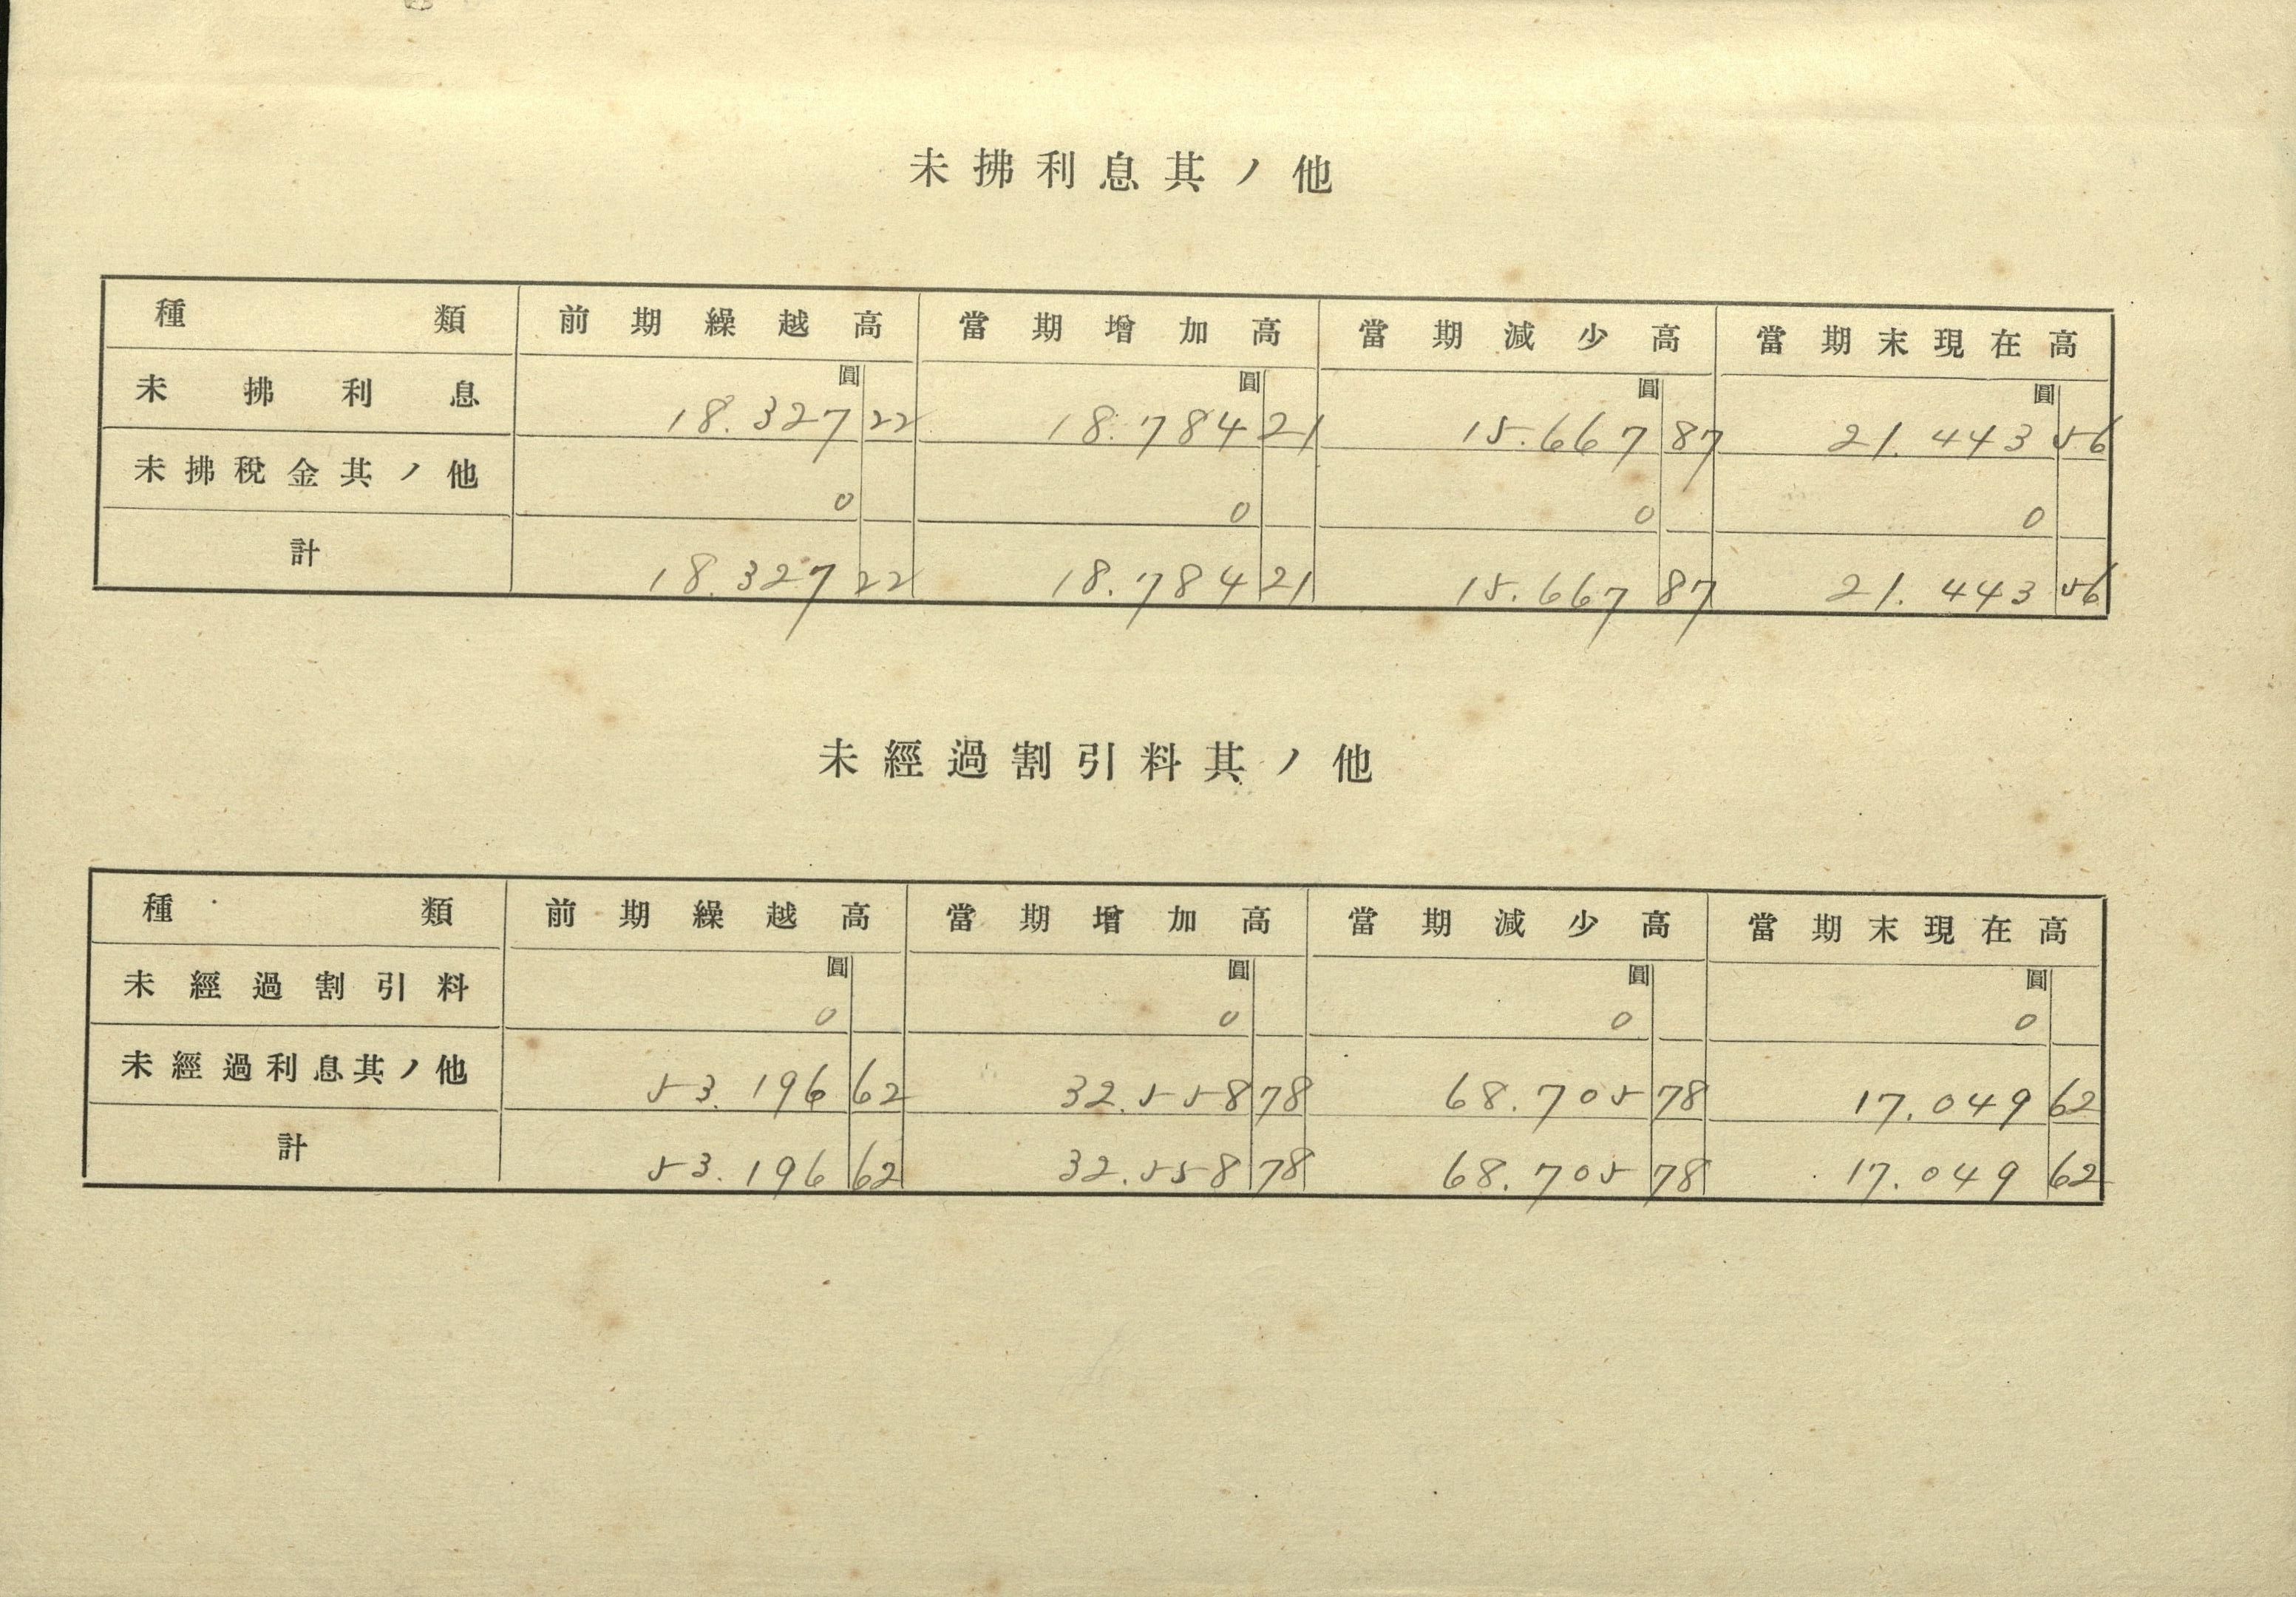 未拂利息其ノ他
種類 前期繰越高 當期增加高 當期減少高 當期末現在高
圓 圓 圓 圓
未拂利息 18.327 22 18.784 21 15.667 87 21.443 56
未拂稅金其ノ他 0 0 0 0
計 18.327 22 18.784 21 15.667 87 21.443 56
未經過割引料其ノ他
種類 前期繰越高 當期增加高 當期減少高 當期末現在高
圓 圓 圓 圓
未經過割引料 0 0 0 0
未經過利息其ノ他 53.196 62 32.558 78 68.705 78 17.049 62
計 53.196 62 32.558 78 68.705 78 17.049 62